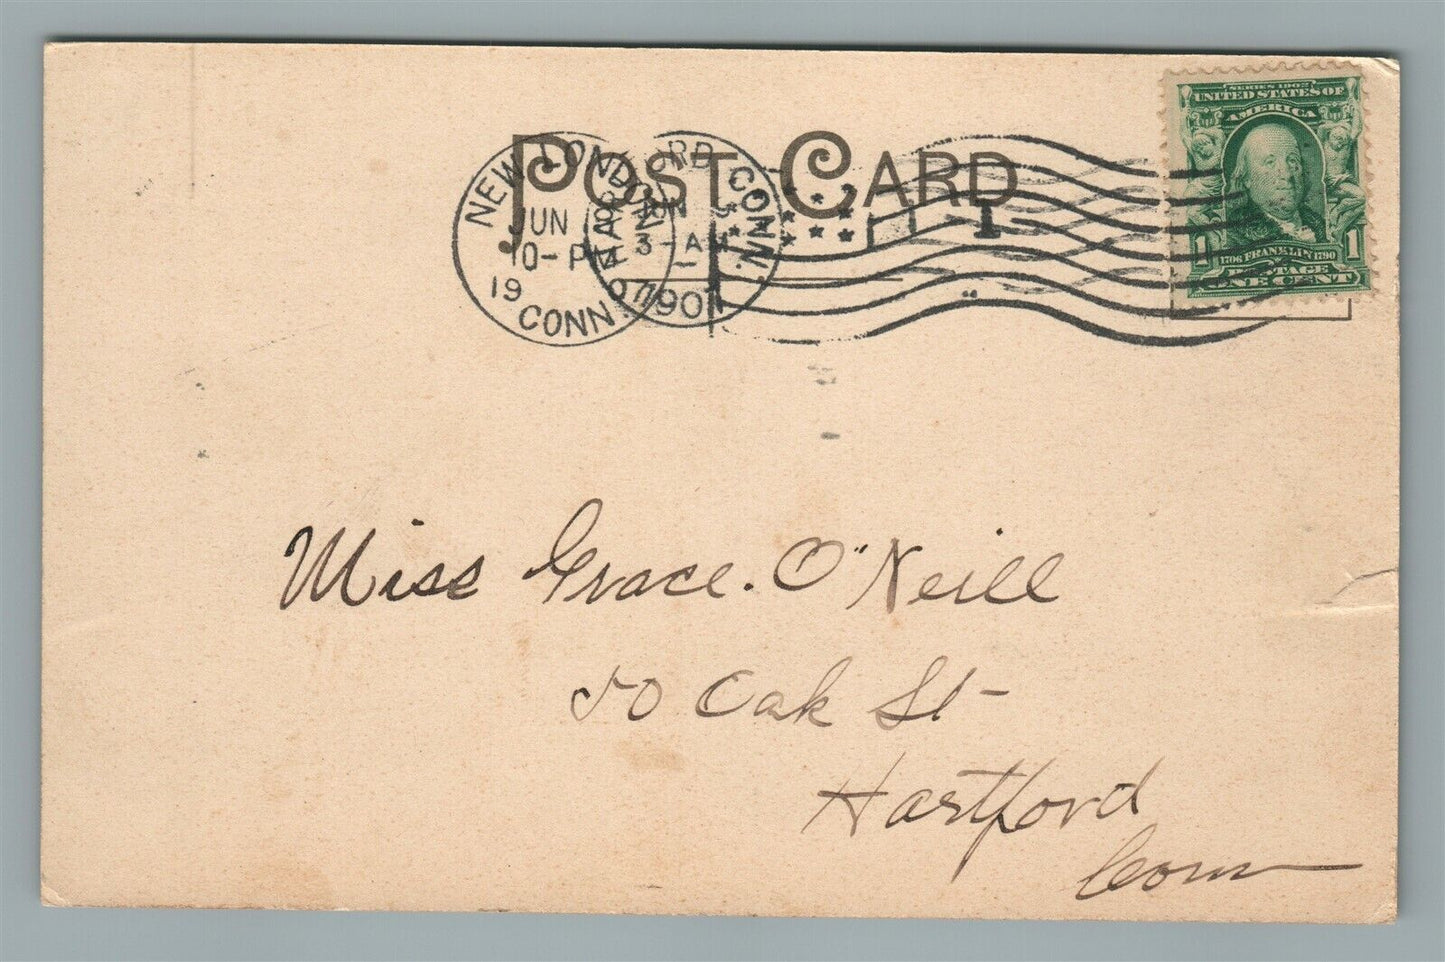 POST CARD
NEW LONDON
JUN
10-PM
1907
CONN.
HARTFORD, CONN.
JUN 5
3-AM
1907
1
SERIES 1902
UNITED STATES OF
AMERICA
1 1706 FRANKLIN 1790 1
POSTAGE
ONE CENT
Miss Grace. O'Neill
50 Oak St-
Hartford
Conn